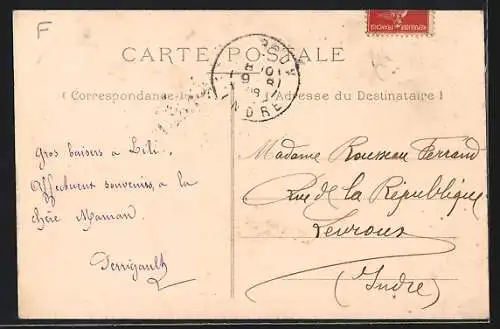 F
CARTE POSTALE
( Correspondance
Adresse du Destinataire )
INDRE
Gros baisers à Lili.
Affectueux souvenirs, à la
chère Maman.
Perrigault
Madame Rousseau Ferrand
Rue de la République
Levroux
(Indre)